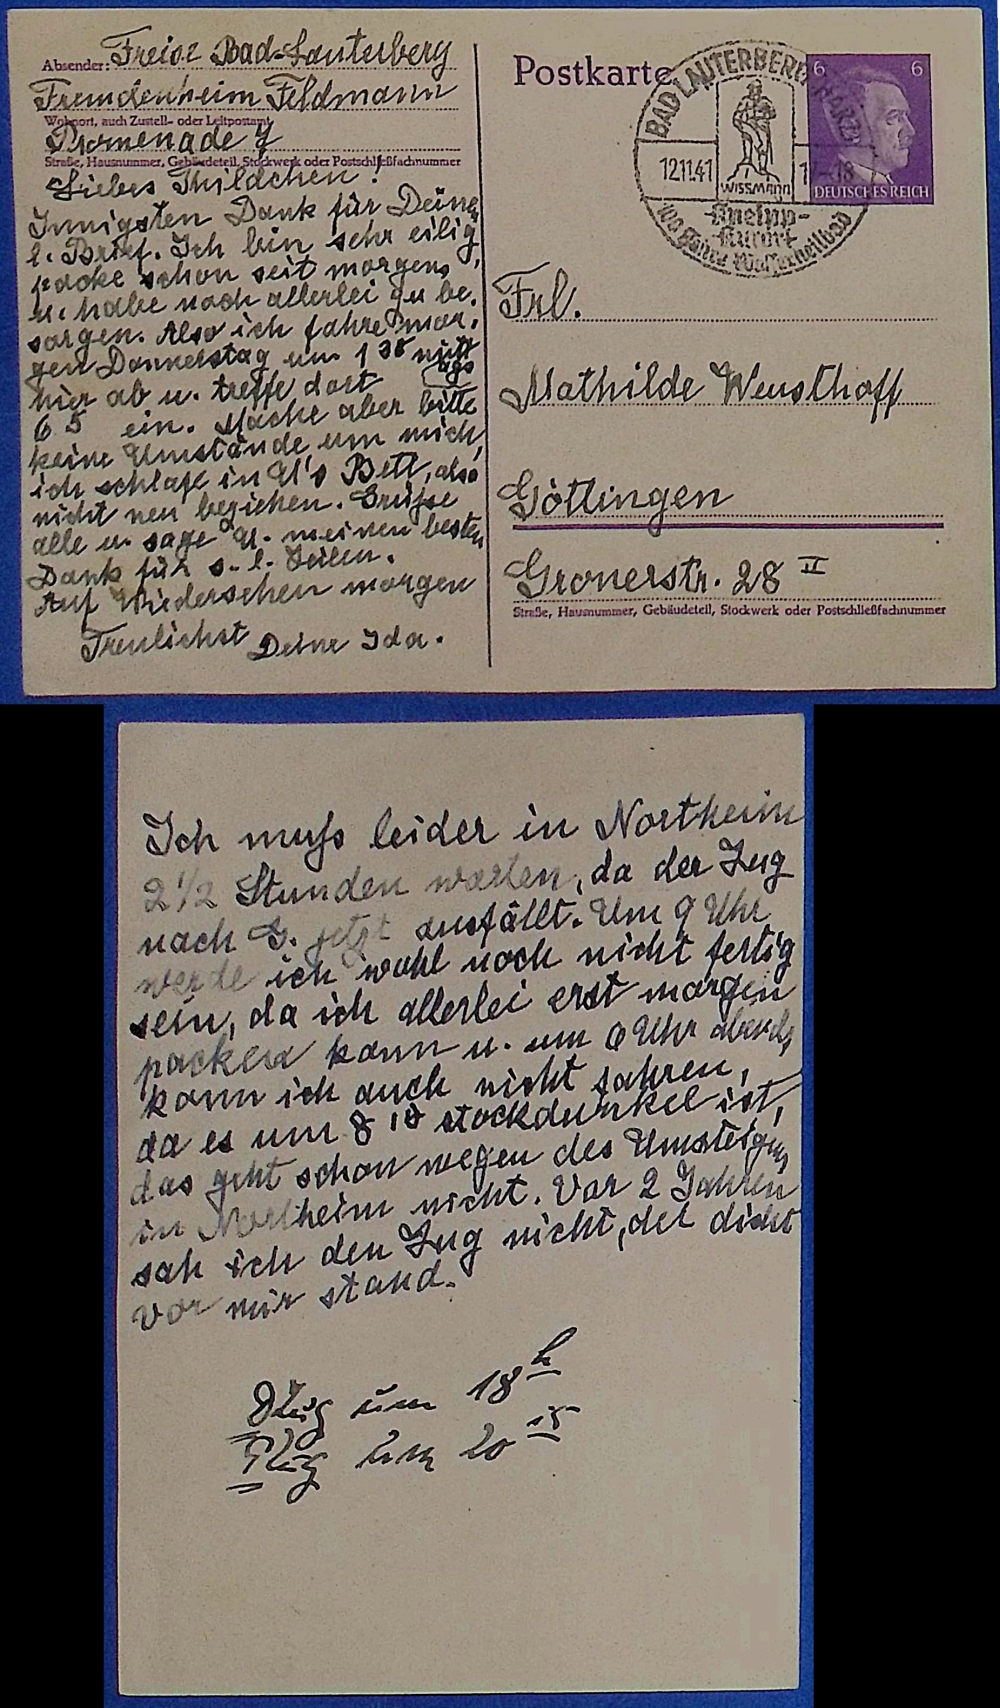 Absender: Freise Bad-Lauterberg
Fremdenheim Feldmann
Wohnort, auch Zustell- oder Leitpostamt
Promenade 7
Straße, Hausnummer, Gebäudeteil, Stockwerk oder Postschließfachnummer
Liebes Thildchen!
Innigsten Dank für Deinen
l. Brief. Ich bin sehr eilig,
packe schon seit morgens
u. habe noch allerlei zu be-
sorgen. Also ich fahre mor-
gen Donnerstag um 1 38 mitt
ags
hier ab u. treffe dort
6 5 ein. Mache aber bitte
keine Umstände um mich,
ich schlafe in U's Bett, also
nicht neu beziehen. Grüsse
alle u. sage U. meinen besten
Dank für s. l. Zeilen.
Auf Wiedersehen morgen
Treulichst Deine Ida.
Postkarte
6 6
DEUTSCHES REICH
BAD LAUTERBERG (HARZ)
12.11.41
-18
WISSMANN
-Kneipp-
-Kurort-
100 Jahre Wasserheilbad
Frl.
Mathilde Wensthoff
Göttingen
Gronerstr. 28 II
Straße, Hausnummer, Gebäudeteil, Stockwerk oder Postschließfachnummer
Ich muss leider in Northeim
2 1/2 Stunden warten, da der Zug
nach G. jetzt ausfällt. Um 9 Uhr
werde ich wohl noch nicht fertig
sein, da ich allerlei erst morgen
packen kann u. um 6 Uhr abends
kann ich auch nicht fahren,
da es um 8 18 stockdunkel ist,
das geht schon wegen des Umsteigens
in Northeim nicht. Vor 2 Jahren
sah ich den Zug nicht, der dicht
vor mir stand.
Zug um 18 h
Zug um 20 15